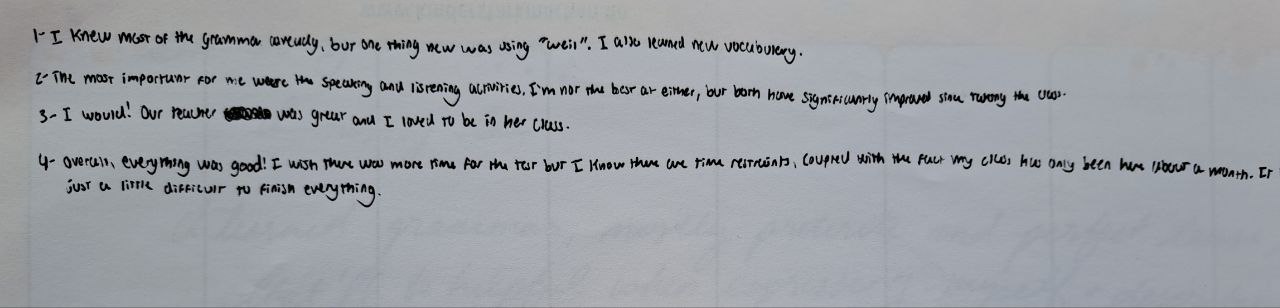 1- I knew most of the grammar already, but one thing new was using "weil". I also learned new vocabulary.
2- The most important for me were the speaking and listening activities. I'm not the best at either, but both have significantly improved since taking the class.
3- I would! Our teacher was great and I loved to be in her class.
4- Overall, everything was good! I wish there was more time for the test but I know there are time restraints, coupled with the fact my class has only been here about a month. It
just a little difficult to finish everything.